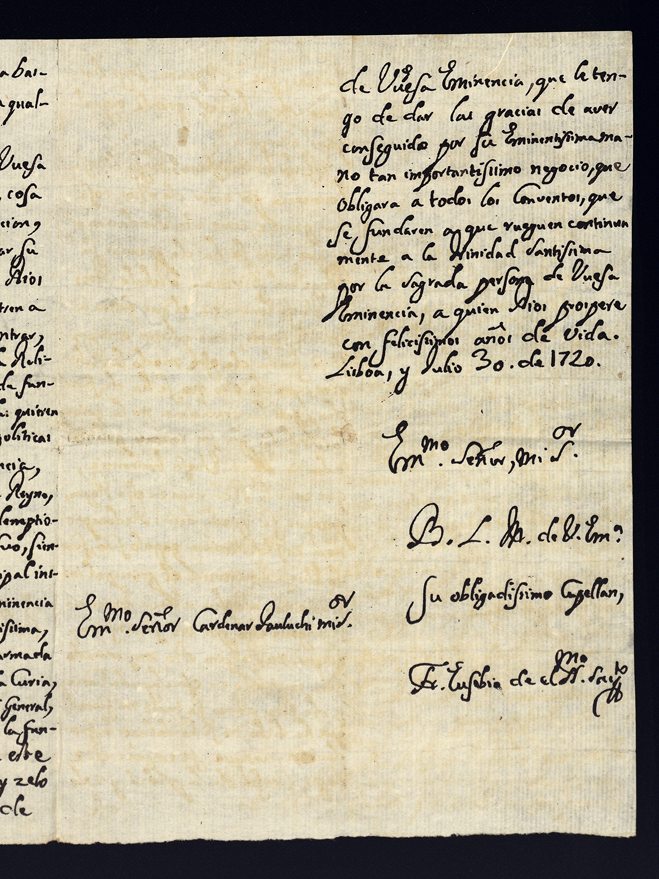 a bai-
a qual-
Vuesa
cosa
cion,
ar su
Dios
tren a
ntrar,
Reli-
de fun-
quieren
politicas
ncia,
Reyno,
dempcio-
vo, sien-
ipal int-
minencia
issima,
armada
a Curia,
General,
la fun-
este
y zelo
de
de Vuesa Eminencia, que le ten-
go de dar las gracias de aver
conseguido por su Eminentissima ma-
no tan importantissimo negocio, que
obligara a todos los Conventos, que
se fundaren a que rueguen continua
mente a la Trinidad Santissima
por la Sagrada persona de Vuesa
Eminencia, a quien Dios prospere
con felicissimos años de vida.
Lisboa, y Julio 30. de 1720.
Em.mo Señor, mi S.or
B. L. M. de V. Em.a
Su obligadissimo Capellan,
Fr. Eusebio de el SS.mo Sac.to
Em.mo Señor Cardenar Pauluchi mi S.or